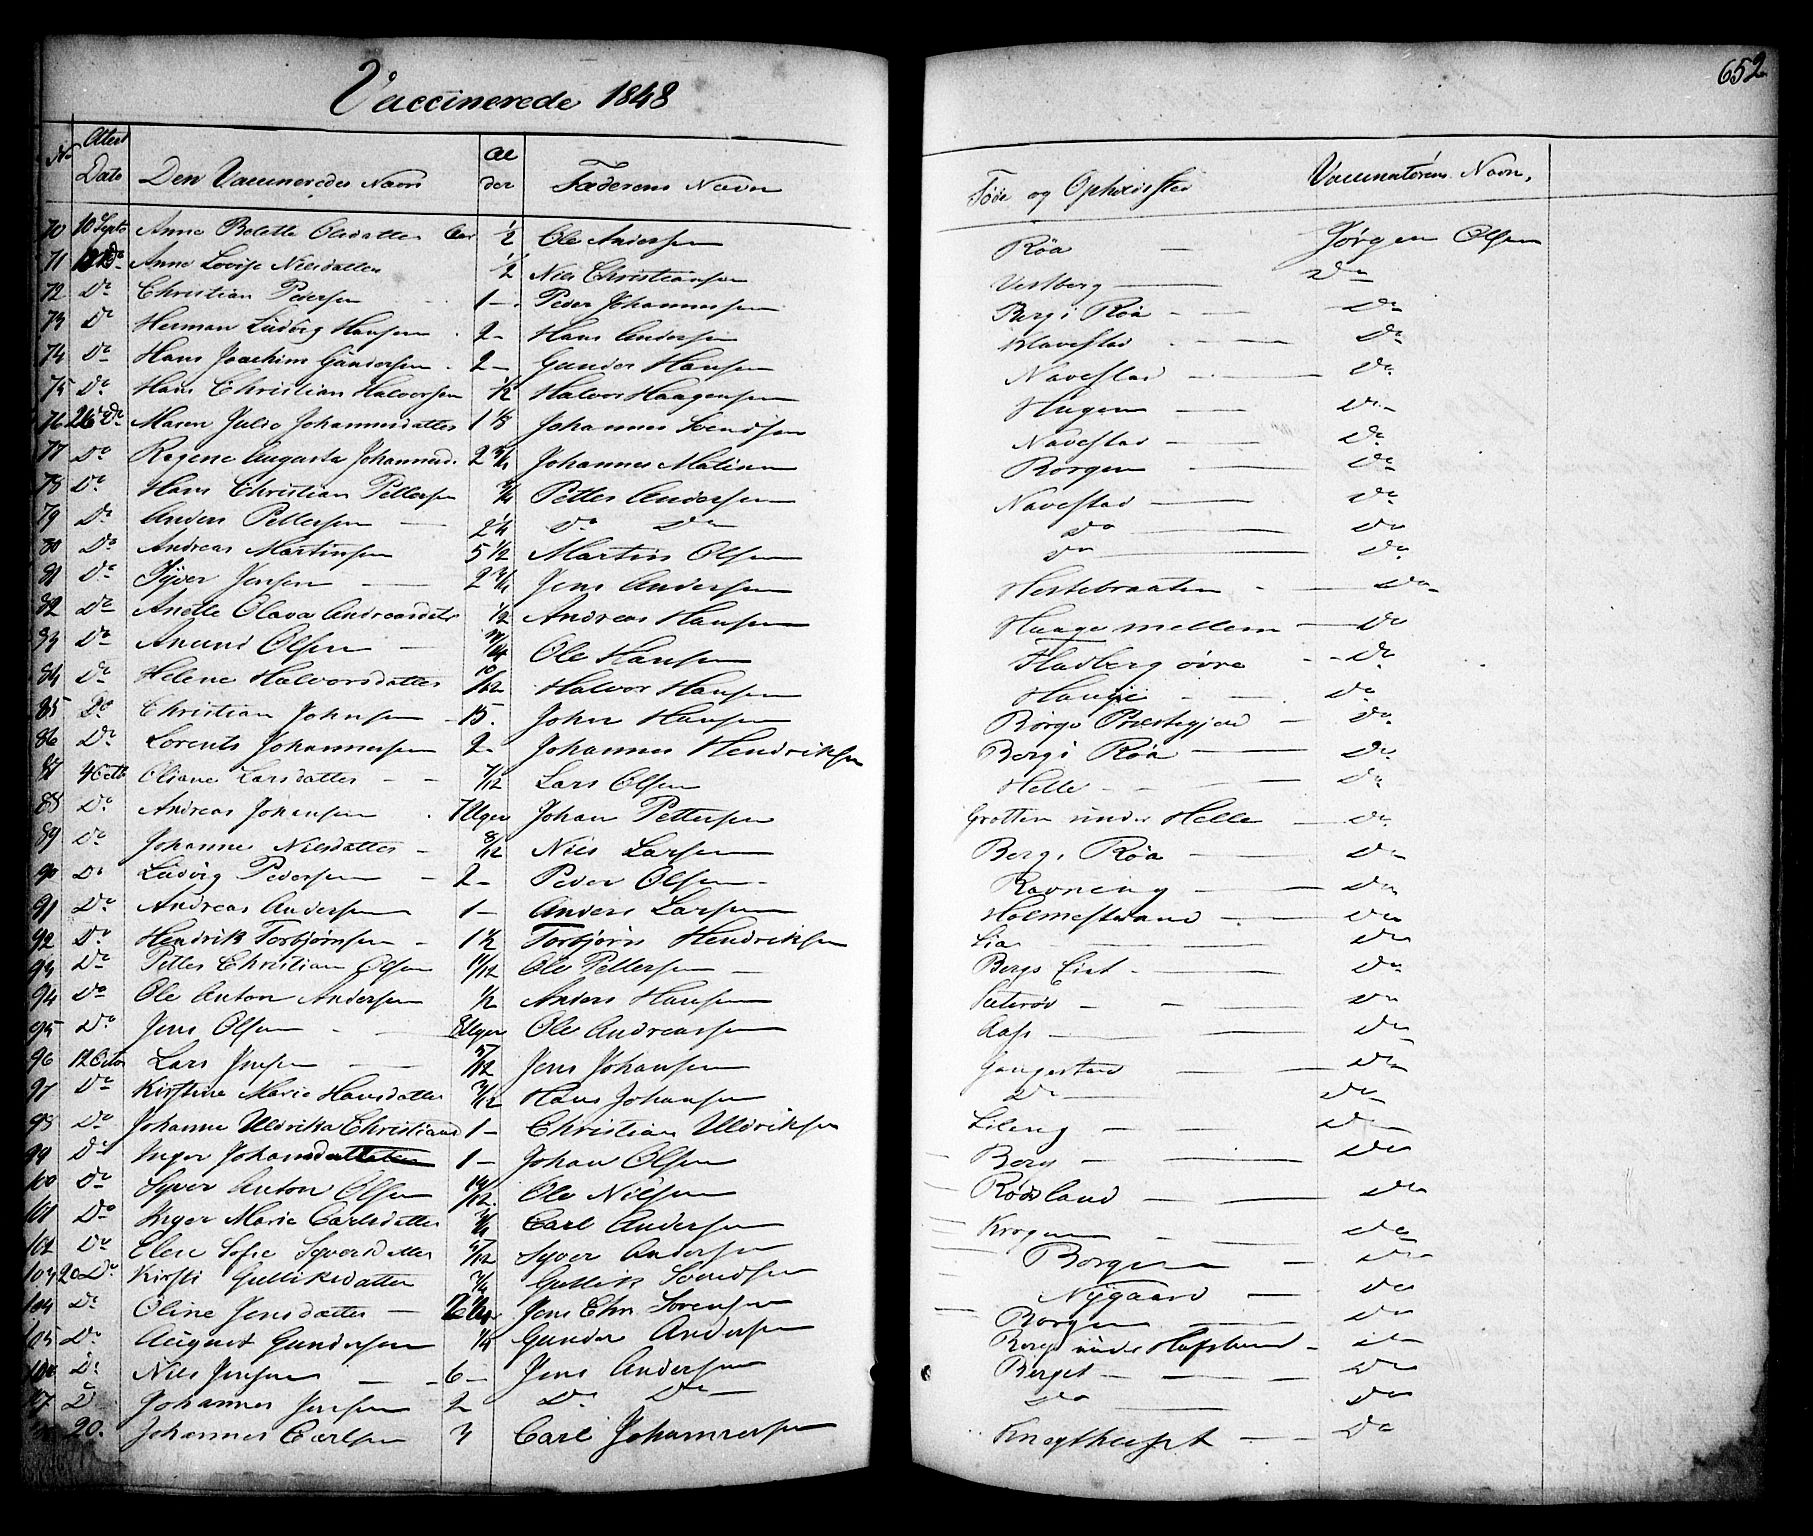 652
Vaccinerede 1848
No Attest Dato Den Vaccineredes Navn Alder Faderens Navn Føde og Opholdssted Vaccinatørens Navn.
70 10 Septb Anne Bolette Olsdatter Aar 1/2 Ole Andersen Røa — Jørgen Olsen
71 Do Anne Lovise Nilsdatter 1/2 Nils Christiansen Vestberg — Do
72 Do Christian Pedersen 1 — Peder Johannesen Berg i Røa — Do
73 Do Herman Ludvig Hansen 2 — Hans Andersen Klavestad — Do
74 Do Hans Joachim Gundersen 2 — Gunder Hansen Navestad — Do
75 Do Hans Christian Halvorsen 1/2 Halvor Haagensen Hugen — Do
76 26 Do Maren Julie Johannesdatter 1 Johannes Svendsen Navestad — Do
77 Do Regine Augusta Johannesd. 2 3/4 Johannes Matisen Borgen — Do
78 Do Hans Christian Pettersen 3/4 Petter Andersen Navestad — Do
79 Do Anders Pettersen — 2 1/4 Do Do Do — Do
80 Do Andreas Martinsen 5 1/2 Martin Olsen Do — Do
81 Do Syver Jensen — 2 3/4 Jens Andersen Hestebraaten — Do
82 Do Anette Olava Andreasdatter 1/2 Andreas Hansen Haage mellem — Do
83 Do Anund Olsen — Ole Hansen Hadberg øvre — Do
84 Do Helene Halvorsdatter 10/12 Halvor Hansen Hauge — Do
85 Do Christian Johnsen — 15. John Hansen Borge Præstegjeld — Do
86 Do Lorents Johannesen 2 — Johannes Hendriksen Berg i Røa — Do
87 4 Octb Oliane Larsdatter — 7/12 Lars Olsen Helle — Do
88 Do Andreas Johansen 7 Uger Johan Pettersen Grotten under Helle — Do
89 Do Johanne Nilsdatter — 8/12 Nils Larsen Berg i Røa — Do
90 Do Ludvig Pedersen — 2 — Peder Olsen — Ravneng — Do
91 Do Andreas Andersen 1 — Anders Larsen Holmestrand — Do
92 Do Hendrik Torbjørnsen — 1 1/2 Torbjørn Hendriksen Lia — Do
93 Do Petter Christian Olsen 11/12 Ole Pettersen — Bergs Eiet — Do
94 Do Ole Anton Andersen 1/2 Anders Hansen Sæterød — Do
95 Do Jens Olsen — 8 Uger Ole Andreassen Aass — Do
96 12 Octbr Lars Jensen — 5/12 Jens Johansen Gangestad — Do
97 Do Kirstine Marie Hansdatter 3/12 Hans Johansen Do — Do
98 Do Johanne Uldrikka Christiansd 1 — Christian Uldriksen Lileng — Do
99 Do Inger Johansdatter 1 — Johan Olsen Berg — Do
100 Do Syver Anton Olsen 10/12 Ole Nilsen Rødsland — Do
101 Do Inger Marie Carlsdatter 3/4 Carl Andersen Krogen — Do
102 Do Elese Sofie Syversdatter 5/12 Syver Andersen Borgen — Do
103 20 Do Kirsti Gulliksdatter 3/4 Gullik Svendsen Nygaard — Do
104 Do Oline Jensdatter — Jens Chr. Sørensen Borgen — Do
105 Do August Gundersen 1/4 Gunder Andersen Borge under Hafslund — Do
106 Do Nils Jensen — 6 — Jens Andersen Berget — Do
107 Do Johannes Jensen 2 Do Do — Do — Do
20. Johannes Carlsen 3 Carl Johannesen — Do